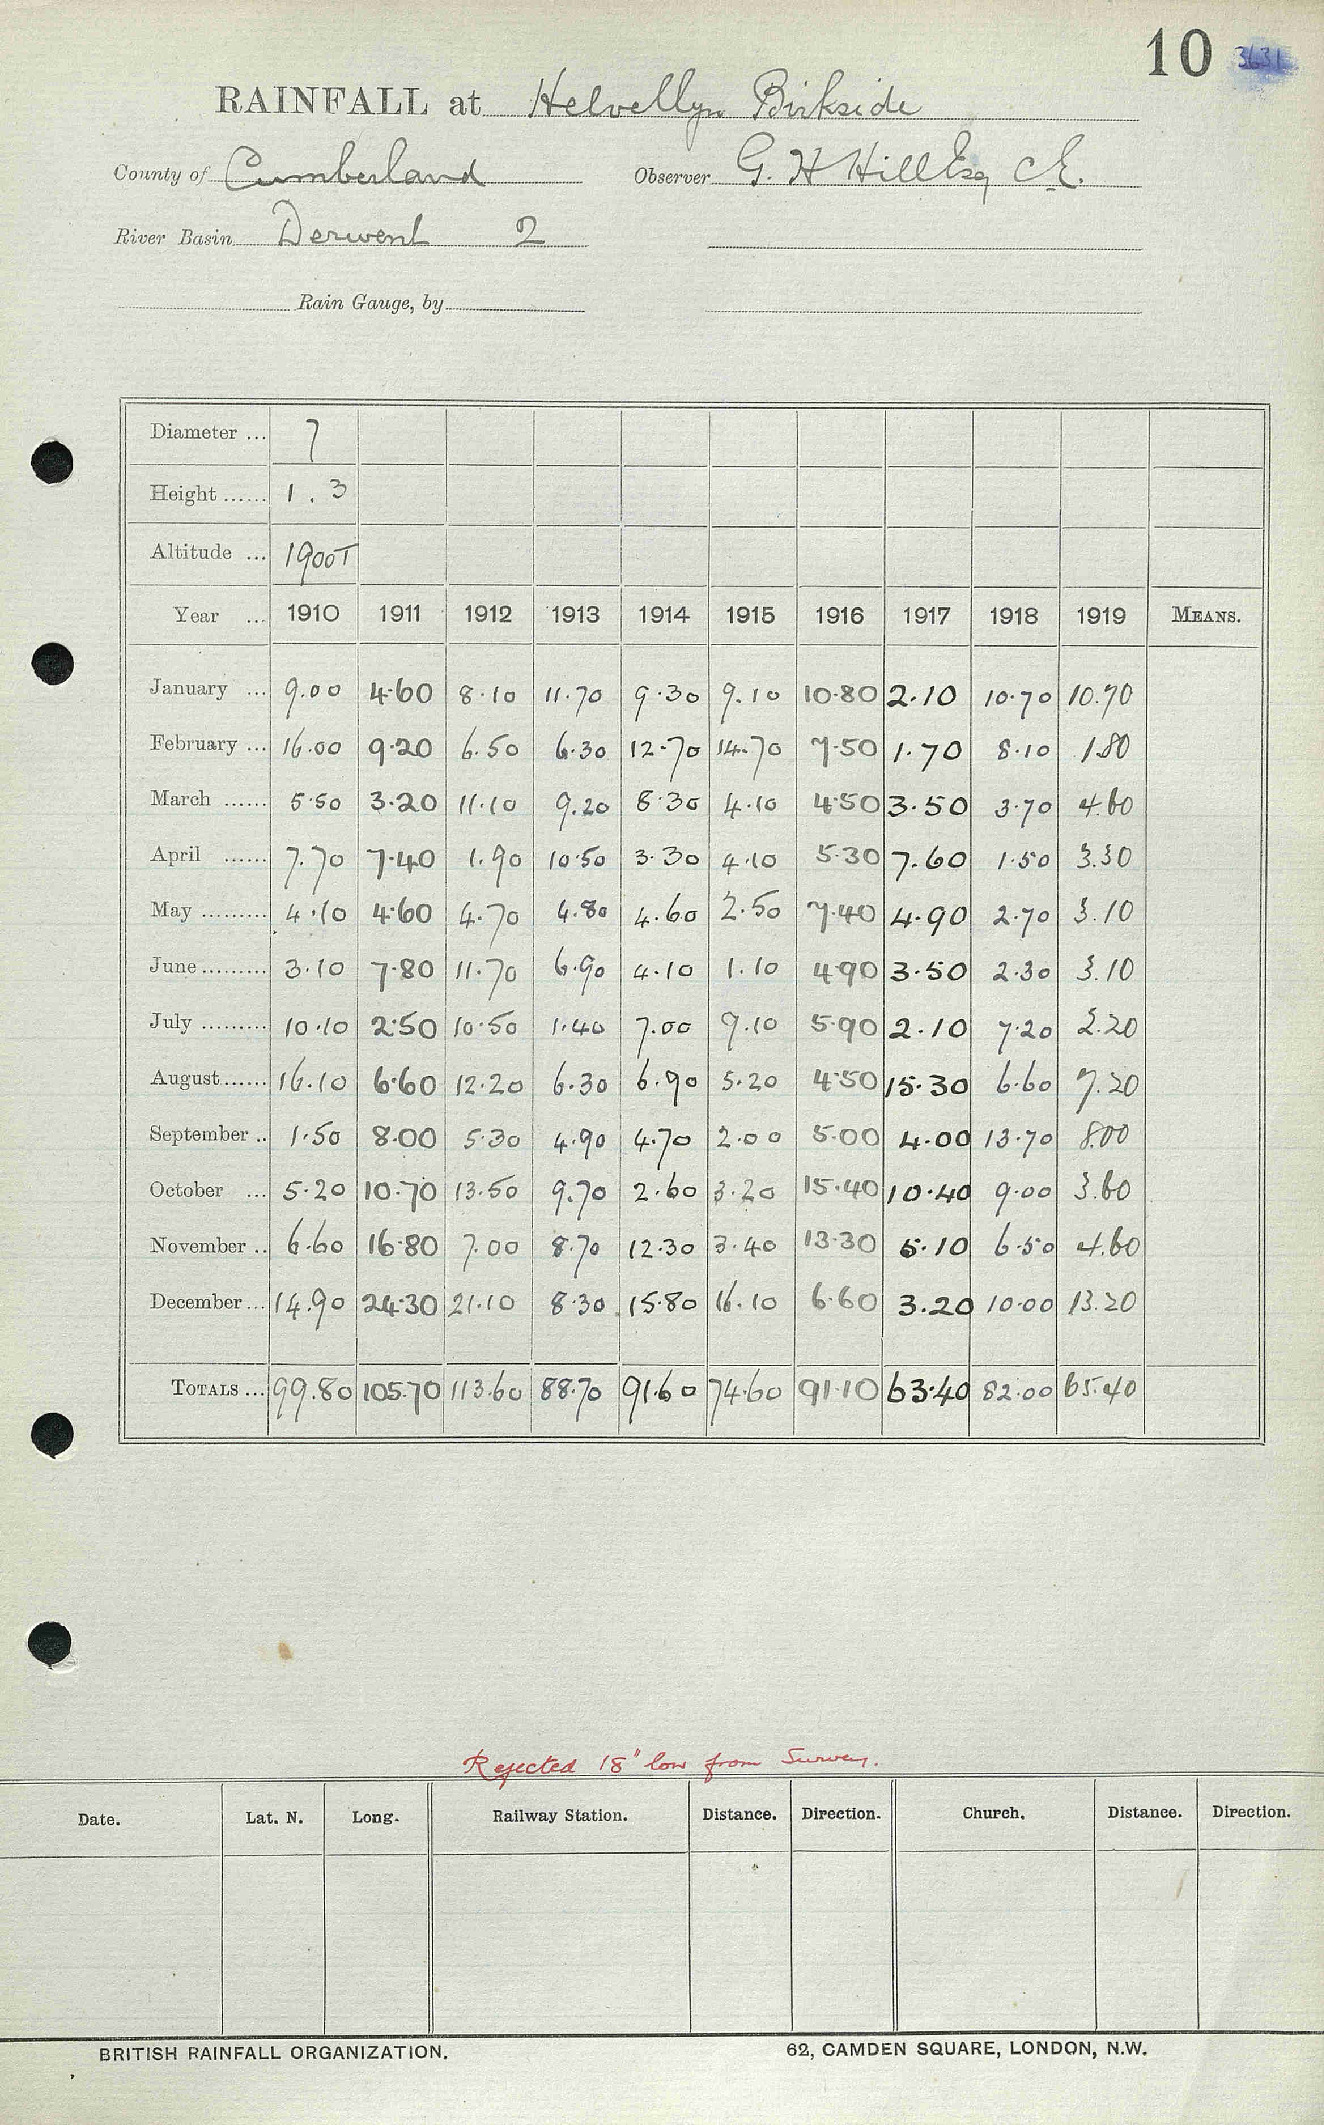 10 3631
RAINFALL at Helvellyn Birkside
County of Cumberland Observer G. H Hill Esq C.E.
River Basin Derwent 2
Rain Gauge, by
Diameter ... 7
Height ...... 1.3
Altitude ... 1900T
Year ... 1910 1911 1912 1913 1914 1915 1916 1917 1918 1919 MEANS.
January ... 9.00 4.60 8.10 11.70 9.30 9.10 10.80 2.10 10.70 10.70
February ... 16.00 9.20 6.50 6.30 12.70 14.70 7.50 1.70 8.10 1.80
March ...... 5.50 3.20 11.10 9.20 8.30 4.10 4.50 3.50 3.70 4.60
April ...... 7.70 7.40 1.90 10.50 3.30 4.10 5.30 7.60 1.50 3.30
May ......... 4.10 4.60 4.70 4.80 4.60 2.50 7.40 4.90 2.70 3.10
June ......... 3.10 7.80 11.70 6.90 4.10 1.10 4.90 3.50 2.30 3.10
July ......... 10.10 2.50 10.50 1.40 7.00 9.10 5.90 2.10 7.20 2.20
August ...... 16.10 6.60 12.20 6.30 6.90 5.20 4.50 15.30 6.60 7.20
September .. 1.50 8.00 5.30 4.90 4.70 2.00 5.00 4.00 13.70 8.00
October ... 5.20 10.70 13.50 9.70 2.60 3.20 15.40 10.40 9.00 3.60
November .. 6.60 16.80 7.00 8.70 12.30 3.40 13.30 5.10 6.50 4.60
December ... 14.90 24.30 21.10 8.30 15.80 16.10 6.60 3.20 10.00 13.20
TOTALS ... 99.80 105.70 113.60 88.70 91.60 74.60 91.10 63.40 82.00 65.40
Rejected 18" low from Survey.
Date. Lat. N. Long. Railway Station. Distance. Direction. Church. Distance. Direction.
BRITISH RAINFALL ORGANIZATION. 62, CAMDEN SQUARE, LONDON, N.W.